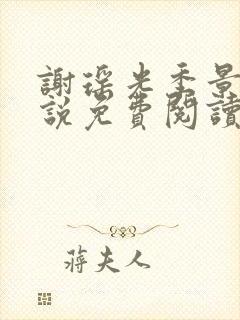 謝瑤光季景
說免費閱讀
蔣夫人